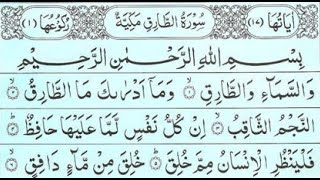 اٰيَاتُهَا (١٧) سُوْرَةُ الطَّارِقِ مَكِّيَّةٌ رُكُوْعُهَا (١)
بِسْمِ اللّٰهِ الرَّحْمٰنِ الرَّحِيْمِ
وَالسَّمَآءِ وَالطَّارِقِ ۙ﴿١﴾ وَمَآ اَدْرٰىكَ مَا الطَّارِقُ ۙ﴿٢﴾
النَّجْمُ الثَّاقِبُ ۙ﴿٣﴾ اِنْ كُلُّ نَفْسٍ لَّمَّا عَلَيْهَا حَافِظٌ ؕ﴿٤﴾
فَلْيَنْظُرِ الْاِنْسَانُ مِمَّ خُلِقَ ؕ﴿٥﴾ خُلِقَ مِنْ مَّآءٍ دَافِقٍ ۙ﴿٦﴾